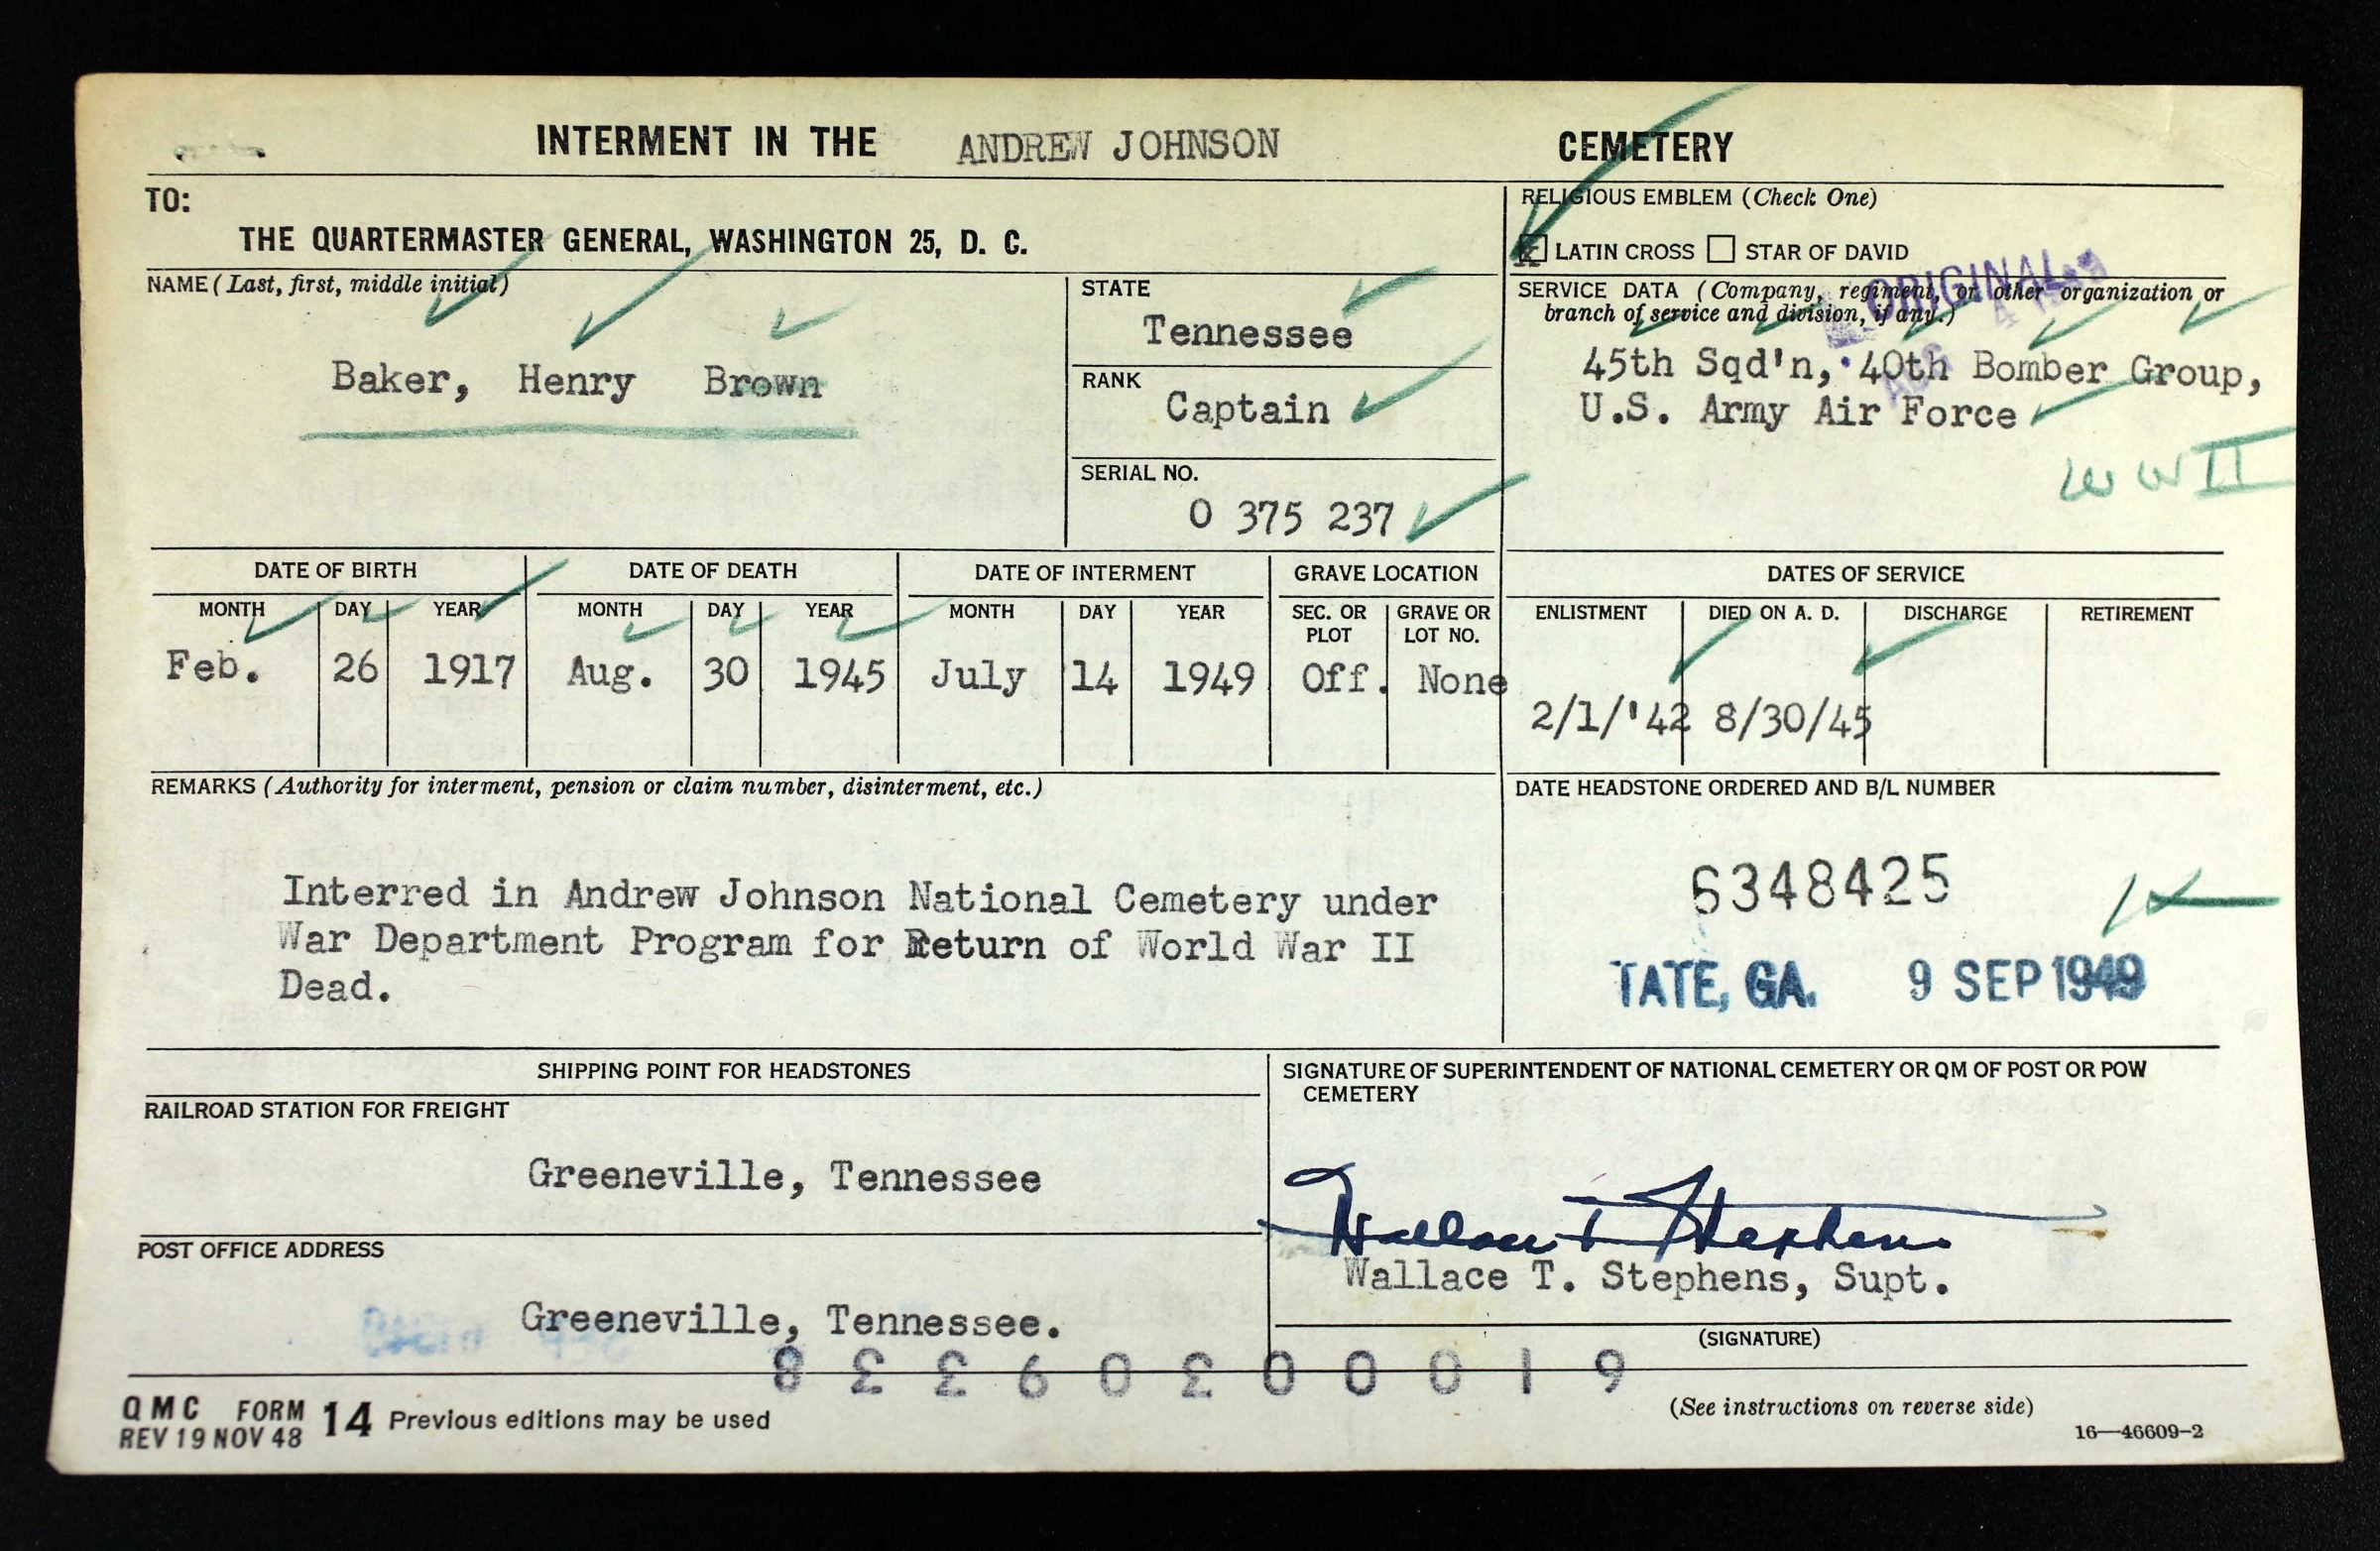 INTERMENT IN THE ANDREW JOHNSON CEMETERY
TO:
THE QUARTERMASTER GENERAL, WASHINGTON 25, D. C.
RELIGIOUS EMBLEM (Check One)
X LATIN CROSS STAR OF DAVID
NAME (Last, first, middle initial)
Baker, Henry Brown
STATE
Tennessee
RANK
Captain
SERIAL NO.
O 375 237
SERVICE DATA (Company, regiment, or other organization or
branch of service and division, if any.)
ORIGINAL
45th Sqd'n, 40th Bomber Group,
U.S. Army Air Force
WW II
DATE OF BIRTH DATE OF DEATH DATE OF INTERMENT GRAVE LOCATION DATES OF SERVICE
MONTH DAY YEAR MONTH DAY YEAR MONTH DAY YEAR SEC. OR PLOT GRAVE OR LOT NO. ENLISTMENT DIED ON A. D. DISCHARGE RETIREMENT
Feb. 26 1917 Aug. 30 1945 July 14 1949 Off. None 2/1/'42 8/30/45
REMARKS (Authority for interment, pension or claim number, disinterment, etc.)
Interred in Andrew Johnson National Cemetery under
War Department Program for Return of World War II
Dead.
DATE HEADSTONE ORDERED AND B/L NUMBER
6348425
TATE, GA. 9 SEP 1949
SHIPPING POINT FOR HEADSTONES
RAILROAD STATION FOR FREIGHT
Greeneville, Tennessee
POST OFFICE ADDRESS
Greeneville, Tennessee.
SIGNATURE OF SUPERINTENDENT OF NATIONAL CEMETERY OR QM OF POST OR POW
CEMETERY
Wallace T Stephens
Wallace T. Stephens, Supt.
(SIGNATURE)
61000309338
QMC FORM 14 Previous editions may be used
REV 19 NOV 48
(See instructions on reverse side)
16—46609-2